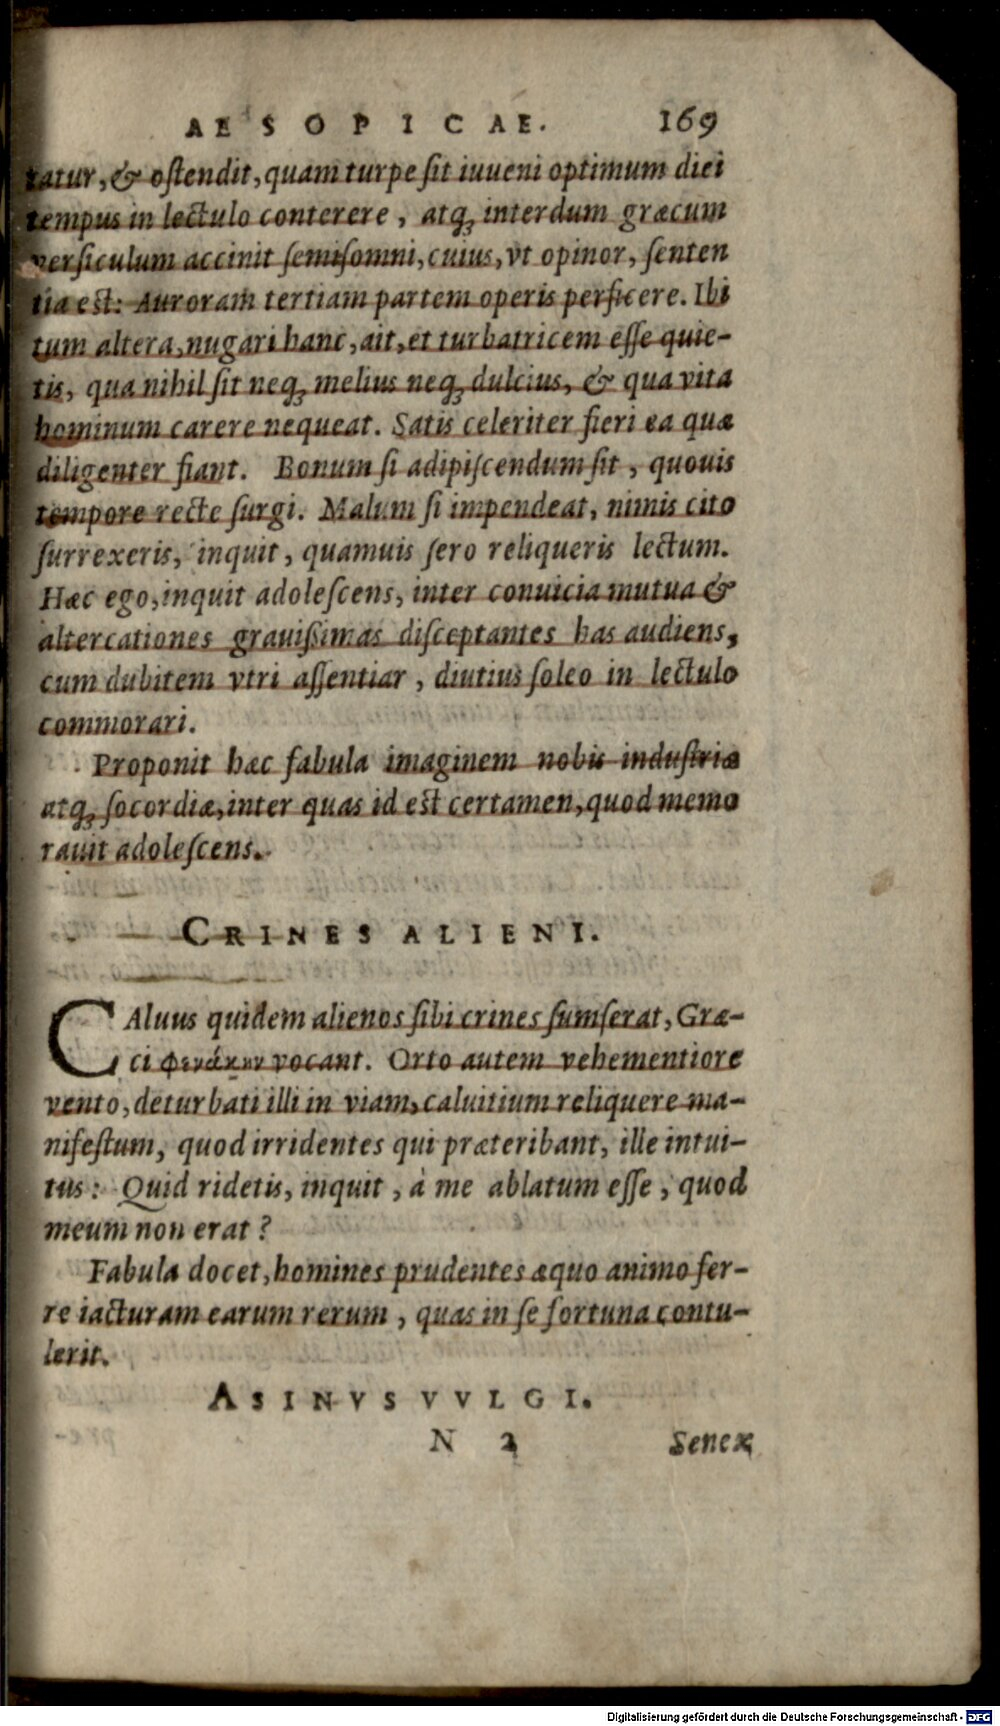 AESOPICAE. 169
tatur, & ostendit, quam turpe sit iuueni optimum diei
tempus in lectulo conterere, atq; interdum græcum
versiculum accinit semisomni, cuius, vt opinor, senten
tia est: Auroram tertiam partem operis perficere. Ibi
tum altera, nugari hanc, ait, et turbatricem esse quie-
tis, qua nihil sit neq; melius neq; dulcius, & qua vita
hominum carere nequeat. Satis celeriter fieri ea quæ
diligenter fiant. Bonum si adipiscendum sit, quouis
tempore recte surgi. Malum si impendeat, nimis cito
surrexeris, inquit, quamuis sero reliqueris lectum.
Hæc ego, inquit adolescens, inter conuicia mutua &
altercationes grauissimas disceptantes has audiens,
cum dubitem vtri assentiar, diutius soleo in lectulo
commorari.
Proponit hæc fabula imaginem nobis industriæ
atq; socordiæ, inter quas id est certamen, quod memo
rauit adolescens.
CRINES ALIENI.
CAluus quidem alienos sibi crines sumserat, Græ-
ci φενάκην vocant. Orto autem vehementiore
vento, deturbati illi in viam, caluitium reliquere ma-
nifestum, quod irridentes qui præteribant, ille intui-
tus: Quid ridetis, inquit, à me ablatum esse, quod
meum non erat?
Fabula docet, homines prudentes æquo animo fer-
re iacturam earum rerum, quas in se fortuna contu-
lerit.
ASINVS VVLGI.
N 2 Senex
Digitalisierung gefördert durch die Deutsche Forschungsgemeinschaft - DFG